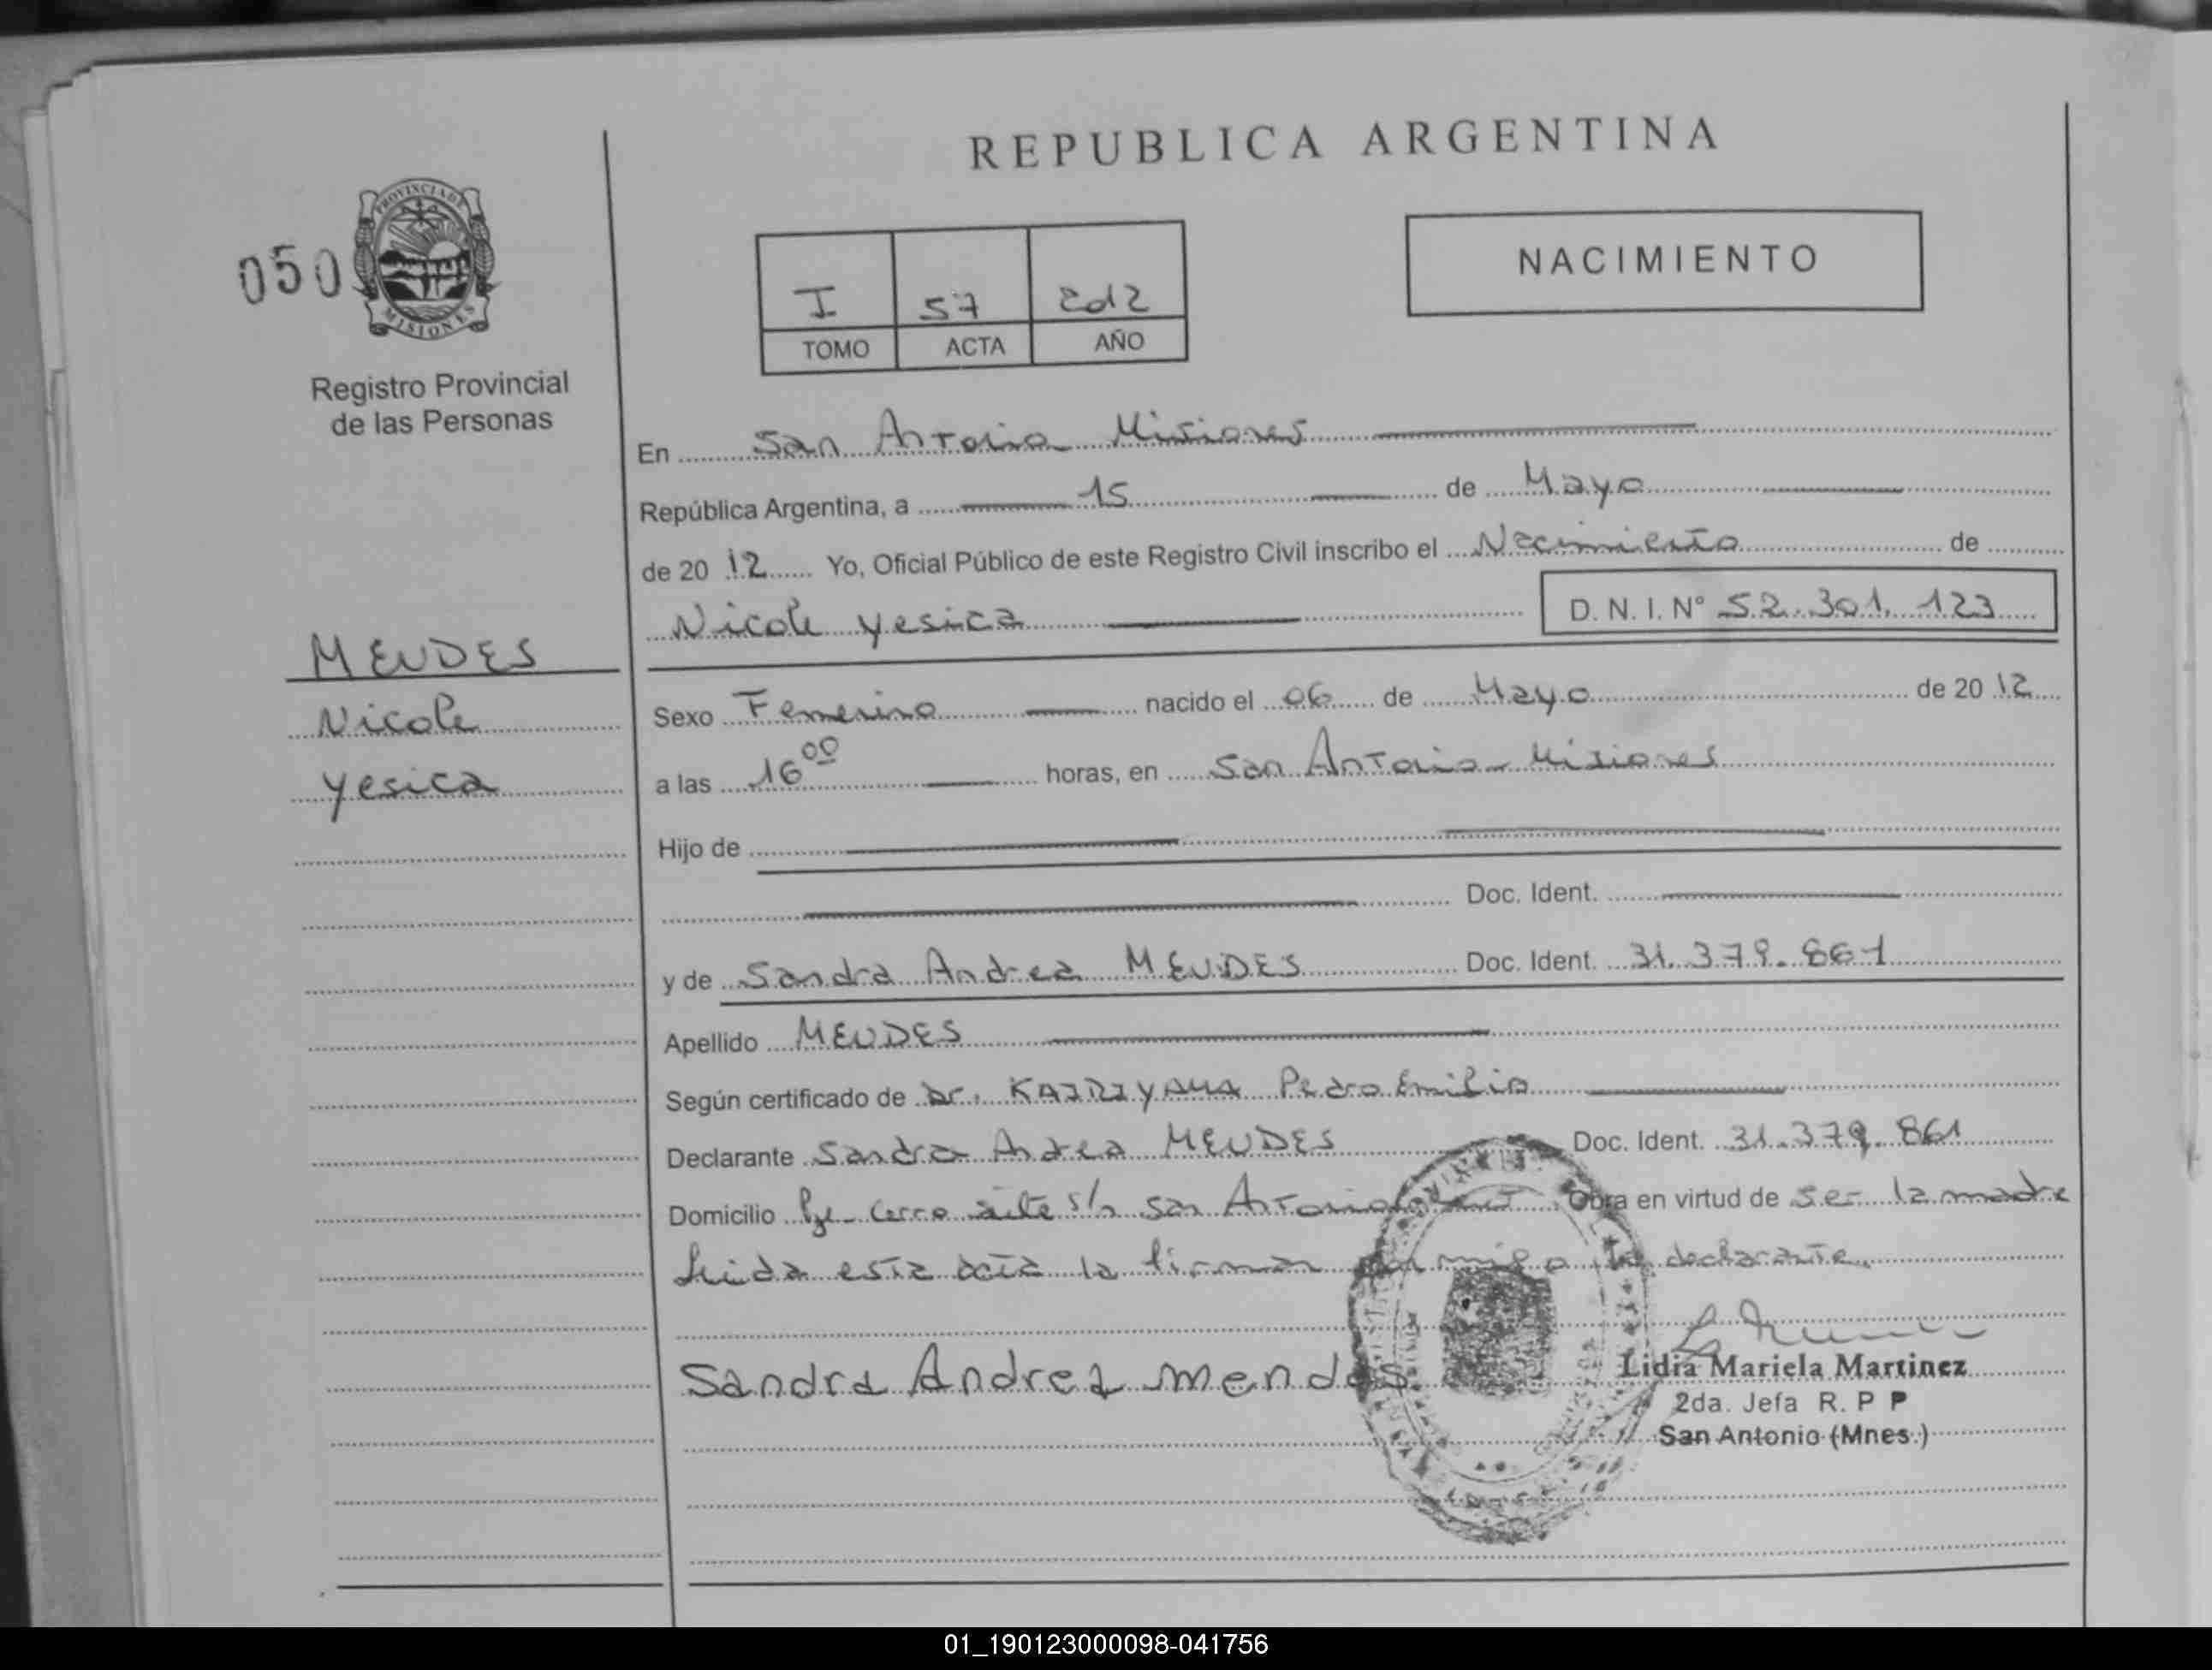 REPUBLICA ARGENTINA
050
PROVINCIA DE
MISIONES
Registro Provincial
de las Personas
I 57 2012
TOMO ACTA AÑO
NACIMIENTO
En San Antonio Misiones
República Argentina, a 15 de Mayo
de 20 12 Yo, Oficial Público de este Registro Civil inscribo el Nacimiento de
Nicole Yesica D. N. I. N° 52.301.123
MENDES
Nicole
Yesica
Sexo Femenino nacido el 06 de Mayo de 20 12
a las 16 00 horas, en San Antonio - Misiones
Hijo de
Doc. Ident.
y de Sandra Andrea MENDES Doc. Ident. 31.379.861
Apellido MENDES
Según certificado de Dr. Pedro Emilio
Declarante Sandra Andrea MENDES Doc. Ident. 31.379.861
Domicilio Cerro siete s/n San Antonio Obra en virtud de ser la madre
Leida esta acta la firman la declarante
Sandra Andrea mendes
Lidia Mariela Martinez
2da. Jefa R. P P
San Antonio (Mnes.)
01_190123000098-041756